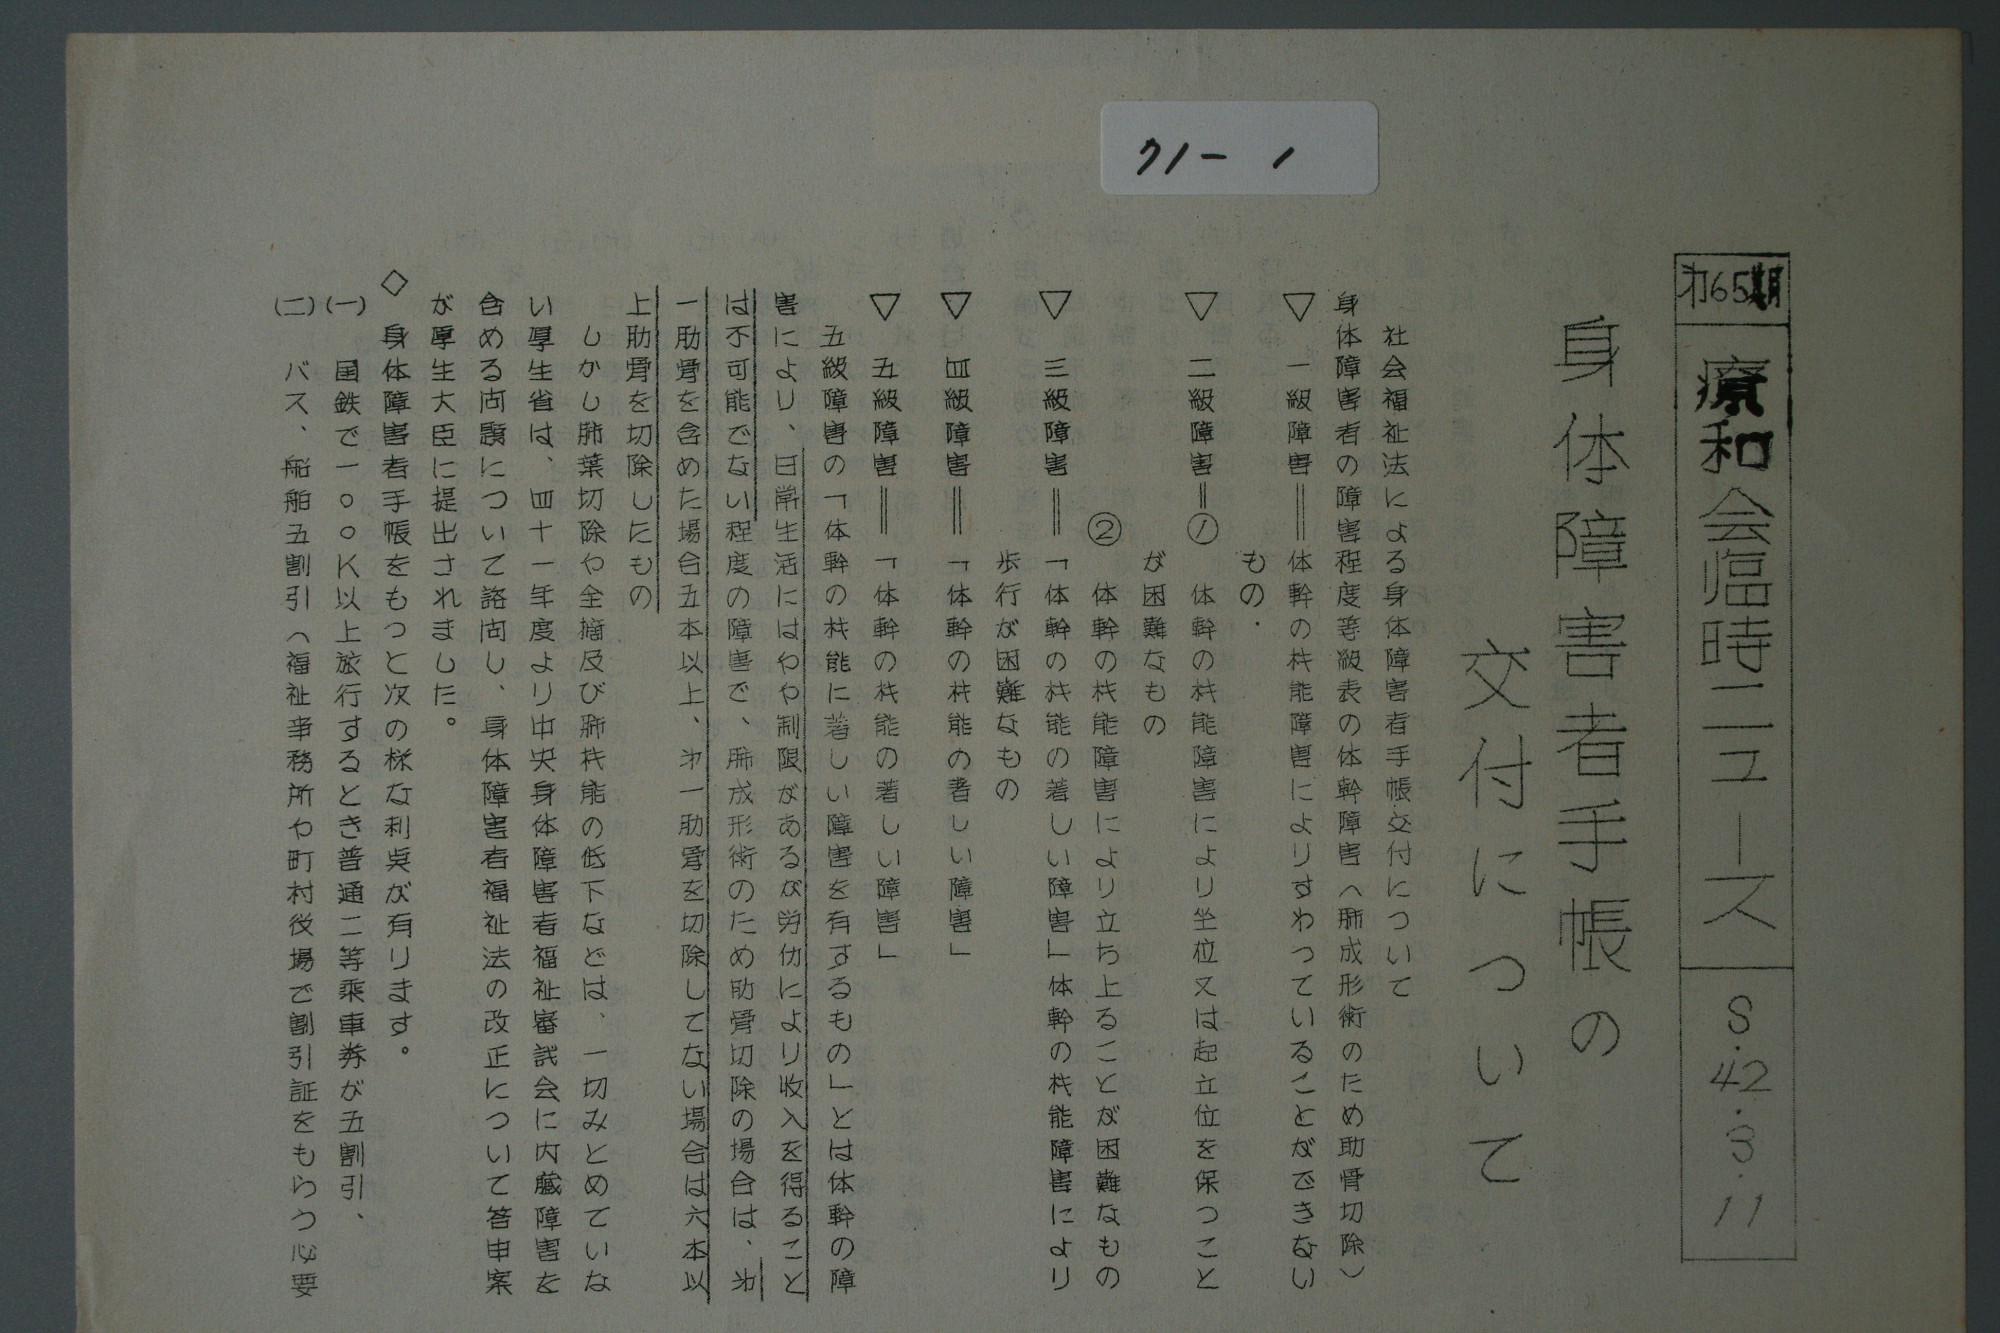 71-1
才65期
療和会臨時ニュース
S.42.3.11
身体障害者手帳の
交付について
社会福祉法による身体障害者手帳交付について
身体障害者の障害程度等級表の体幹障害(肺成形術のため肋骨切除)
▽ 一級障害=体幹の枝能障害によりすわっていることができない
もの.
▽ 二級障害=① 体幹の枝能障害により坐位又は起立位を保つこと
が困難なもの
② 体幹の枝能障害により立ち上ることが困難なもの
▽ 三級障害=「体幹の枝能の著しい障害」体幹の枝能障害により
歩行が困難なもの
▽ 四級障害=「体幹の枝能の著しい障害」
▽ 五級障害=「体幹の枝能の著しい障害」
五級障害の「体幹の枝能に著しい障害を有するもの」とは体幹の障
害により、日常生活にはやや制限があるが労仂により收入を得ること
は不可能でない程度の障害で、肺成形術のため肋骨切除の場合は、才
一肋骨を含めた場合五本以上、才一肋骨を切除してない場合は六本以
上肋骨を切除したもの
しかし肺葉切除や全摘及び肺枝能の低下などは、一切みとめていな
い厚生省は、四十一年度より中央身体障害者福祉審議会に内臓障害を
含める问題について諮问し、身体障害者福祉法の改正について答申案
が厚生大臣に提出されました。
◇ 身体障害者手帳をもつと次の様な利点が有ります。
(一) 国鉄で一〇〇K以上旅行するとき普通二等乗車券が五割引、
(二) バス、船舶五割引(福祉事務所や町村役場で割引証をもらう必要